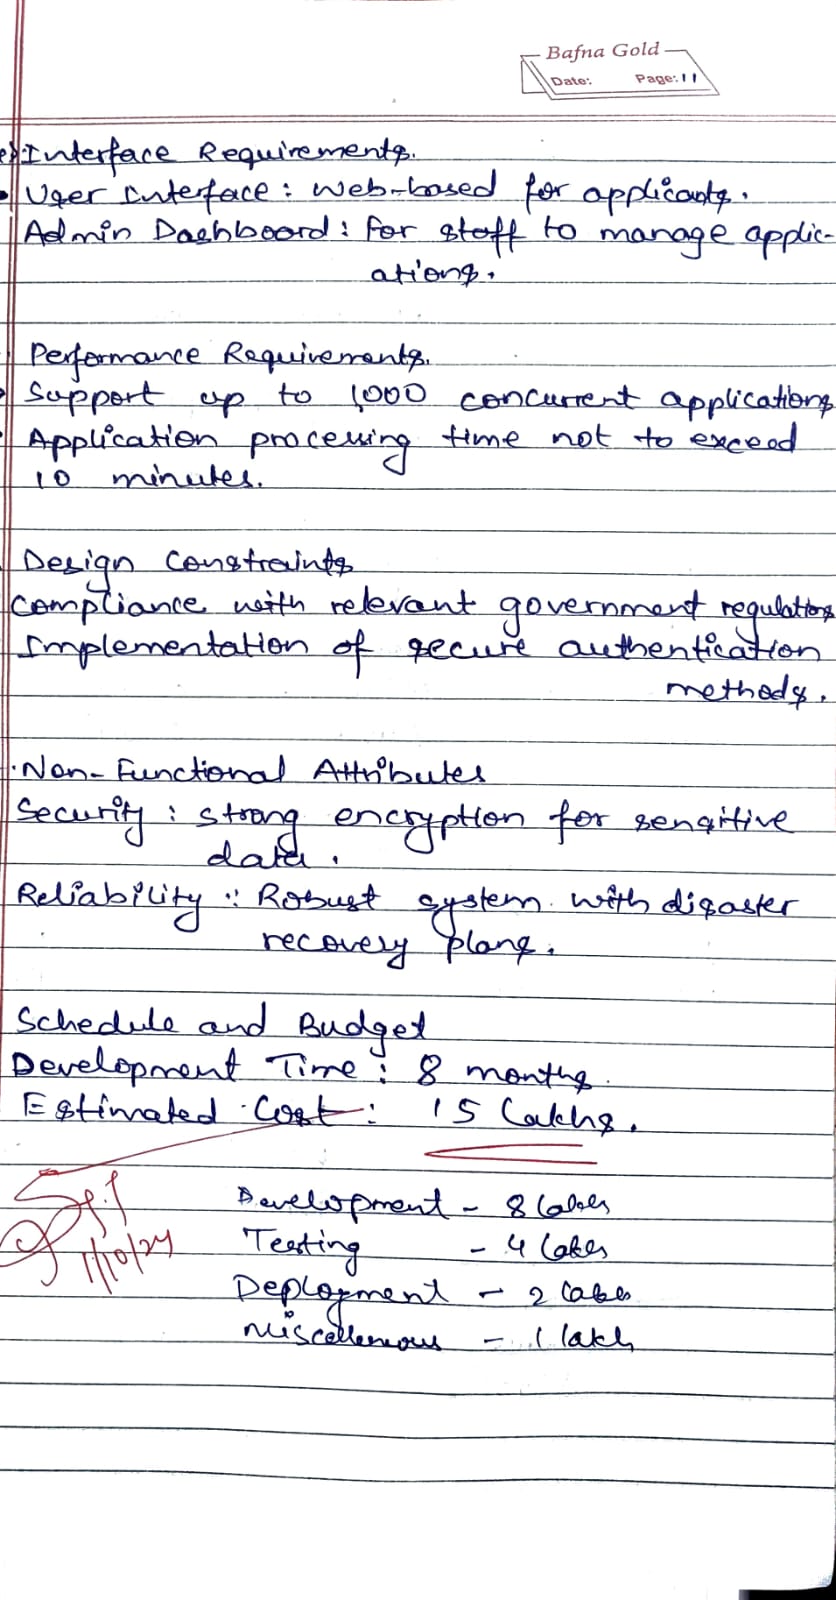 Bafna Gold
Date: Page: 11
e) Interface Requirements.
• User Interface: Web-based for applicants.
Admin Dashboard: for staff to manage applic-
ations.
Performance Requirements.
Support up to 1,000 concurrent applications
Application processing time not to exceed
10 minutes.
Design Constraints
Compliance with relevant government regulations
Implementation of secure authentication
methods.
Non-Functional Attributes
Security: strong encryption for sensitive
data.
Reliability: Robust system with disaster
recovery plans.
Schedule and Budget
Development Time: 8 months.
Estimated Cost: 15 Lakhs.
Development - 8 lakhs
Testing - 4 lakhs
1/10/24
Deployment - 2 lakhs
Miscellenious - 1 lakh